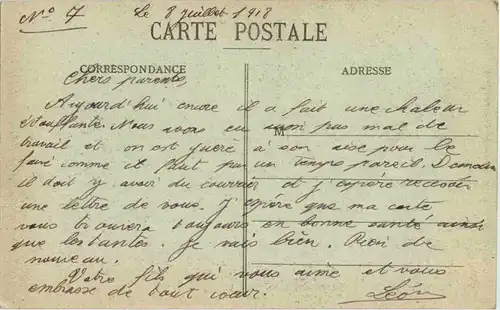 N° 7 Le 8 juillet 1918
CARTE POSTALE
CORRESPONDANCE ADRESSE
Chers parents,
Aujourd'hui encore il a fait une chaleur
étouffante. Nous avons eu pas mal de
M
travail et on est guère à son aise pour le
faire comme il faut par un temps pareil. Demain
il doit y avoir du courrier et j'espère recevoir
une lettre de vous. J'espère que ma carte
vous trouvera toujours en bonne santé ainsi
que les tantes. Je vais bien. Rien de
nouveau.
Votre fils qui vous aime et vous
embrasse de tout cœur. Léon